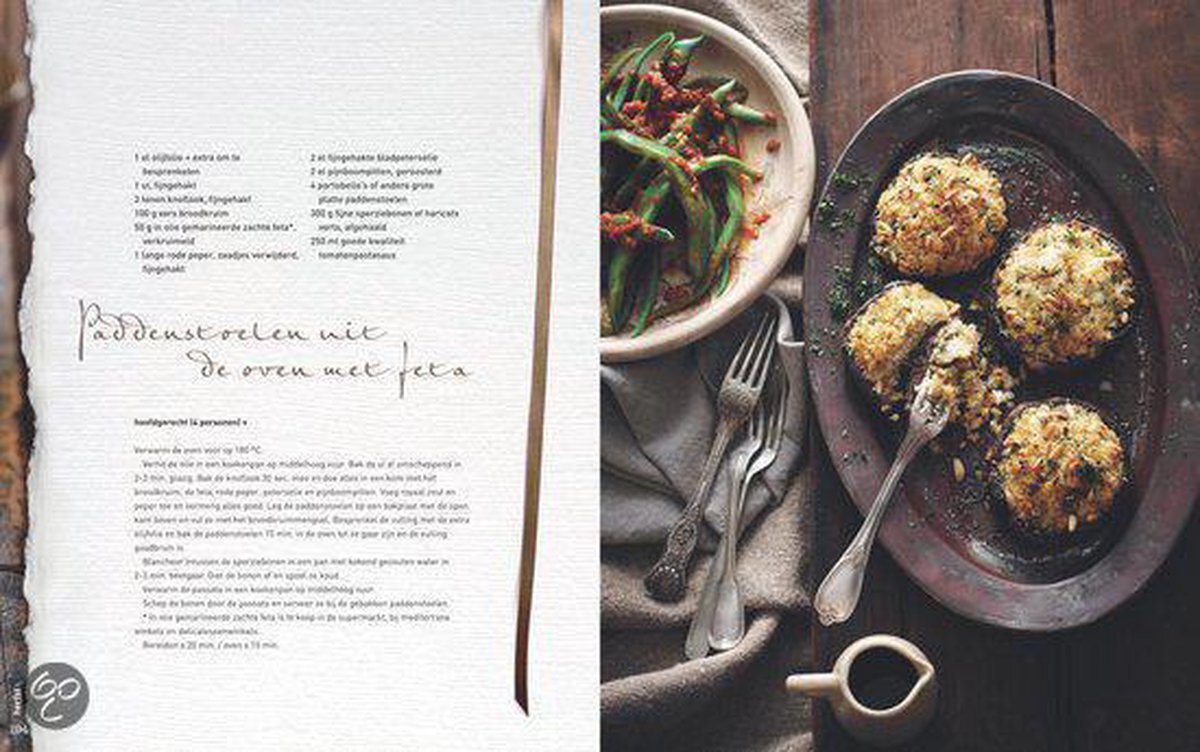 1 el olijfolie + extra om te
besprenkelen
1 ui, fijngehakt
2 tenen knoflook, fijngehakt
100 g vers broodkruim
50 g in olie gemarineerde zachte feta*,
verkruimeld
1 lange rode peper, zaadjes verwijderd,
fijngehakt
2 el fijngehakte bladpeterselie
2 el pijnboompitten, geroosterd
4 portobello's of andere grote
platte paddenstoelen
300 g fijne sperziebonen of haricots
verts, afgehaald
250 ml goede kwaliteit
tomatenpastasaus
Paddenstoelen uit
de oven met feta
hoofdgerecht (4 personen)
Verwarm de oven voor op 180 °C.
Verhit de olie in een koekenpan op middelhoog vuur. Bak de ui al omscheppend in
2-3 min. glazig. Bak de knoflook 30 sec. mee en doe alles in een kom met het
broodkruim, de feta, rode peper, peterselie en pijnboompitten. Voeg royaal zout en
peper toe en vermeng alles goed. Leg de paddenstoelen op een bakplaat met de open
kant boven en vul ze met het broodkruimmengsel. Besprenkel de vulling met de extra
olijfolie en bak de paddenstoelen 15 min. in de oven tot ze gaar zijn en de vulling
goudbruin is.
Blancheer intussen de sperziebonen in een pan met kokend gezouten water in
2-3 min. beetgaar. Giet de bonen af en spoel ze koud.
Verwarm de passata in een koekenpan op middelhoog vuur.
Schep de bonen door de passata en serveer ze bij de gebakken paddenstoelen.
* in olie gemarineerde zachte feta is te koop in de supermarkt, bij mediterrane
winkels en delicatessenwinkels.
Bereiden ± 20 min. / oven ± 15 min.
herfst